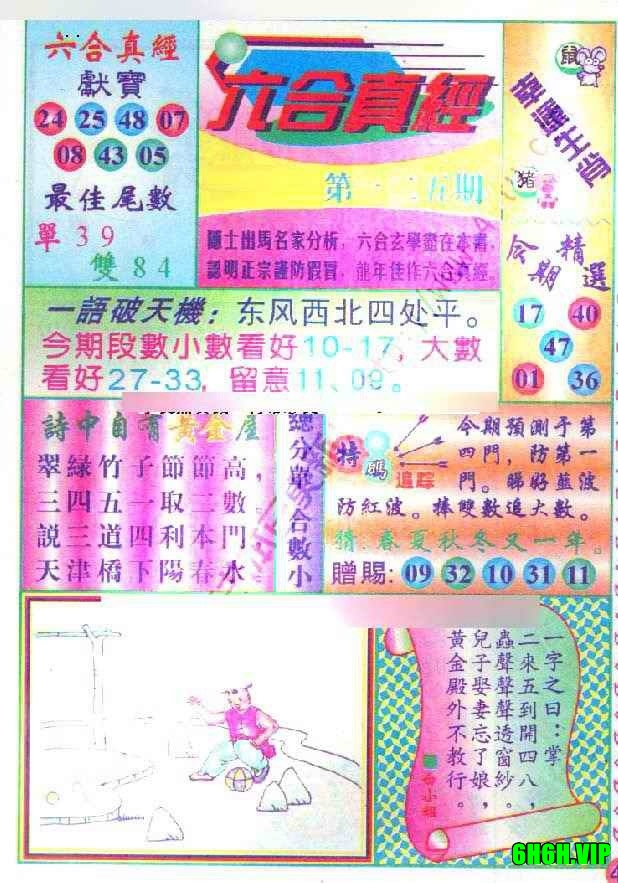 六合真經
獻寶
24 25 48 07
08 43 05
最佳尾數
單39
雙84
六合真經
第一二五期
隱士出馬名家分析，六合玄學盡在本書，
認明正宗謹防假冒，龍年佳作六合真經。
鼠
幸運生肖
猪
今期精選
17 40
47
01 36
一語破天機：东风西北四处平。
今期段數小數看好10-17，大數
看好27-33，留意11、09。
詩中自有黃金屋
翠綠竹子節節高，
三四五一取二數。
説三道四利本門
天津橋下陽春水
總分單合數小
特碼追踪
今期預測于第
四門，防第一
門。睇好藍波
防紅波。捧雙數追大數。
猜：春夏秋冬又一年。
贈賜：09 32 10 31 11
一字之曰：掌
二來五到開四八，
蟲聲聲聲透窗紗。
兒子娶妻忘了娘，
黃金殿外不教行。
6H6H.VIP
4